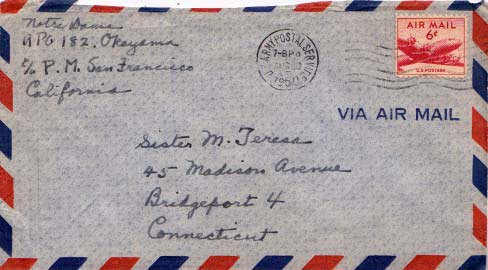 Notre Dame
APO 182, Okayama
c/o P. M. San Francisco
California
ARMY POSTAL SERVICE
1950
AIR MAIL
6¢
U.S. POSTAGE
VIA AIR MAIL
Sister M. Teresa
45 Madison Avenue
Bridgeport 4
Connecticut